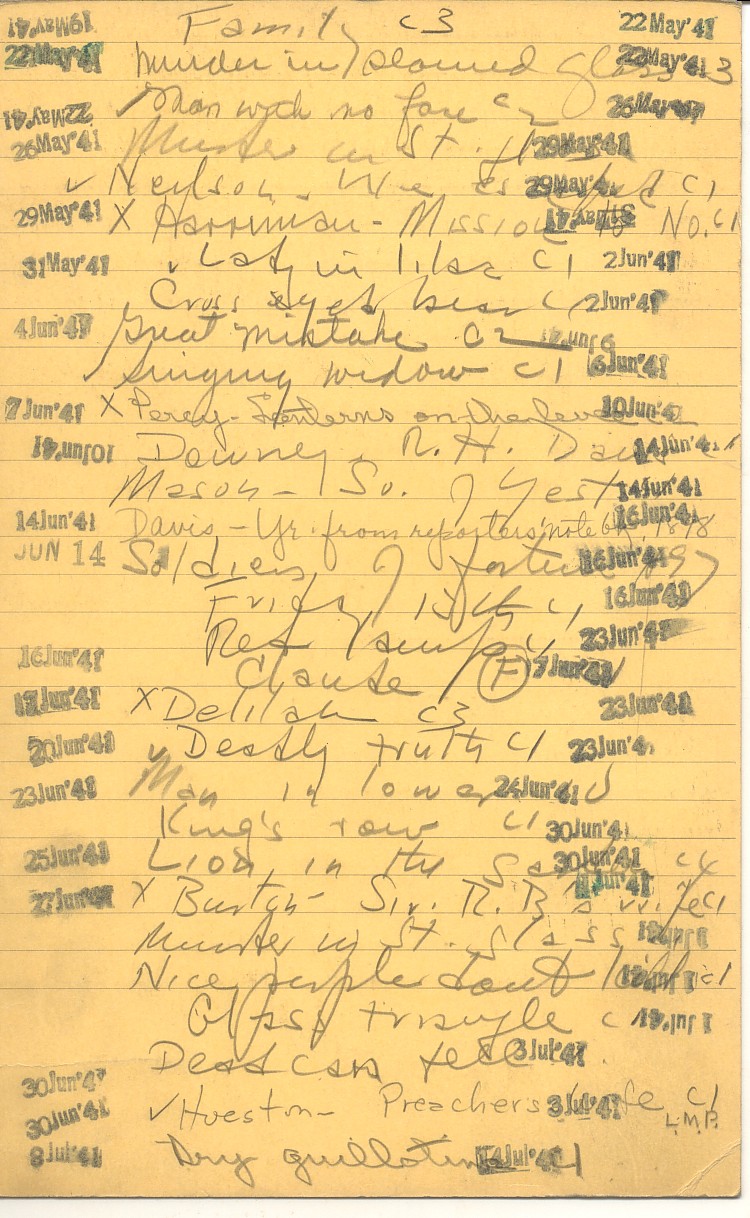 19May'41 Family c3 22May'41
22May'41 Murder in stained glass 22May'41 3
22May'41 ✓ Man with no face c2 26May'41
26May'41 Murder in St. gl 29May'41
✓ Neilson - We es 29May'41 c1
29May'41 X Harriman - Mission to No. c1 31May'41
31May'41 ✓ Lady in lilac c1 2Jun'41
Cross eyed bear c1 2Jun'41
4Jun'41 Great mistake c2 9Jun'41
✓ Singing widow c1 6Jun'41
7Jun'41 X Percy - Lanterns on the levee 10Jun'41
10Jun'41 Downey - R. H. Davis 14Jun'41 c1
Mason - So. of Yest 14Jun'41
14Jun'41 Davis - Yr. from reporters note bk, 1898 16Jun'41
JUN 14 Soldiers of fortune 1897 16Jun'41
Friday 13th c1 16Jun'41
Red c1 23Jun'41
16Jun'41 Claude (F) 7Jun'41
17Jun'41 X Delilah c3 23Jun'41
20Jun'41 ✓ Deadly truth c1 23Jun'41
23Jun'41 Man in lower 24Jun'41
King's row c1 30Jun'41
25Jun'41 Lion in the 30Jun'41
27Jun'41 X Burton - Sir. R. B's wife c1 1Jul'41
Murder in St. glass 1Jul'41
Nice people don't kill c1 1Jul'41
Glass triangle c 1Jul'41
Dead can tell 3Jul'41
30Jun'41
30Jun'41 ✓ Hueston - Preacher's wife c1 3Jul'41
L.M.P.
8Jul'41 Dry guillotine c1 14Jul'41